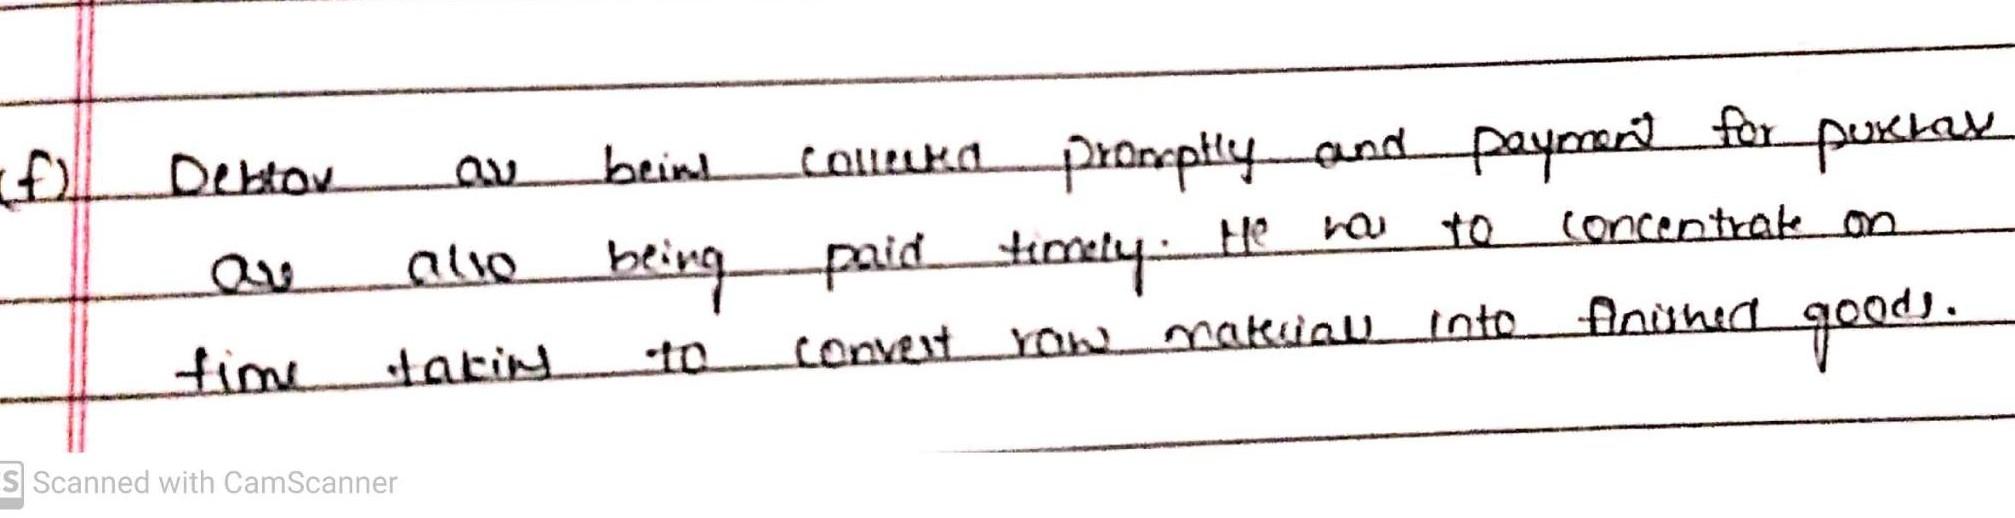 (f) Debtors are being collected promptly and payment for purchase
are also being paid timely. He has to concentrate on
time taking to convert raw materials into finished goods.
S Scanned with CamScanner